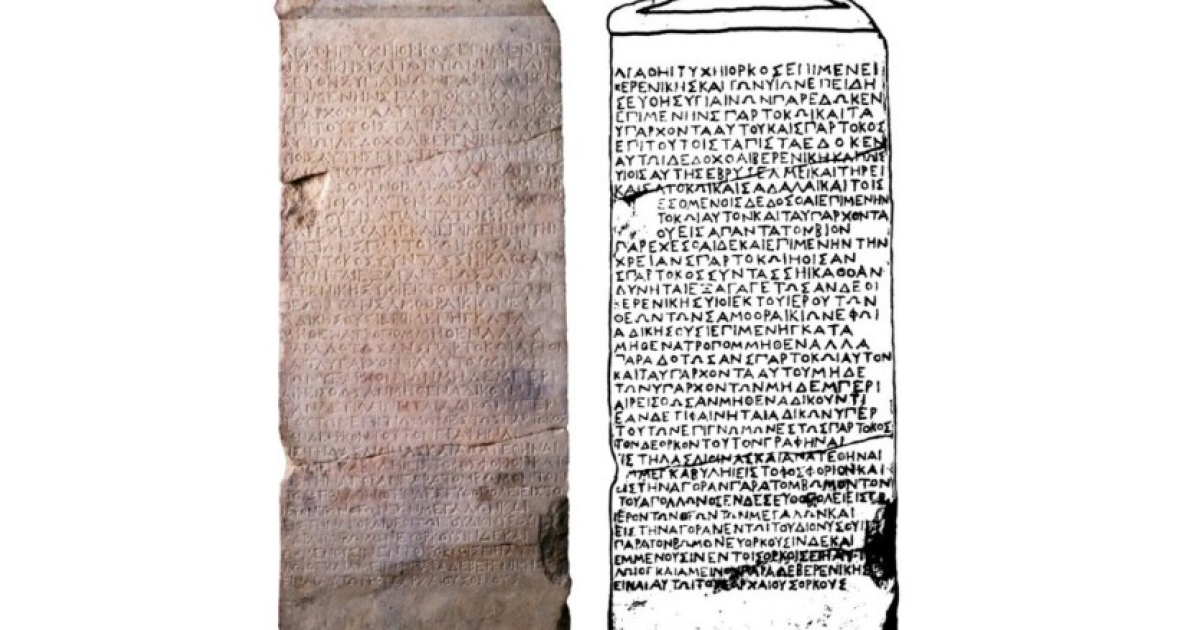 ΑΓΑΘΗΙΤΥΧΗΙΟΡΚΟΣΕΠΙΜΕΝΕΙ
ΒΕΡΕΝΙΚΗΣΚΑΙΤΩΝΥΙΩΝΕΠΕΙΔΗ
ΣΕΥΘΗΣΥΓΙΑΙΝΩΝΠΑΡΕΔΩΚΕΝ
ΕΠΙΜΕΝΗΝΣΠΑΡΤΟΚΩΙΚΑΙΤΑ
ΥΠΑΡΧΟΝΤΑΑΥΤΟΥΚΑΙΣΠΑΡΤΟΚΟΣ
ΕΠΙΤΟΥΤΟΙΣΤΑΠΙΣΤΑΕΔΟΚΕΝ
ΑΥΤΩΙΔΕΔΟΧΘΑΙΒΕΡΕΝΙΚΗΙΚΑΙΤΟΙΣ
ΥΙΟΙΣΑΥΤΗΣΕΒΡΥΖΕΛΜΕΙΚΑΙΤΗΡΕΙ
ΚΑΙΣΑΤΟΚΩΙΚΑΙΣΑΔΑΛΑΙΚΑΙΤΟΙΣ
ΕΣΟΜΕΝΟΙΣΔΕΔΟΣΘΑΙΕΠΙΜΕΝΗΝ
ΤΟΚΩΙΑΥΤΟΝΚΑΙΤΑΥΠΑΡΧΟΝΤΑ
ΟΥΕΙΣΑΠΑΝΤΑΤΟΝΒΙΟΝ
ΠΑΡΕΧΕΣΘΑΙΔΕΚΑΙΕΠΙΜΕΝΗΝΤΗΝ
ΧΡΕΙΑΝΣΠΑΡΤΟΚΩΙΗΟΙΣΑΝ
ΣΠΑΡΤΟΚΟΣΣΥΝΤΑΣΣΗΙΚΑΘΟΑΝ
ΔΥΝΗΤΑΙΕΞΑΓΑΓΕΤΩΣΑΝΔΕΟΙ
ΒΕΡΕΝΙΚΗΣΥΙΟΙΕΚΤΟΥΙΕΡΟΥΤΩΝ
ΘΕΩΝΤΩΝΣΑΜΟΘΡΑΙΚΙΩΝΕΦΩΙ
ΑΔΙΚΗΣΟΥΣΙΕΠΙΜΕΝΗΓΚΑΤΑ
ΜΗΘΕΝΑΤΡΟΠΟΜΜΗΘΕΝΑΛΛΑ
ΠΑΡΑΔΟΤΩΣΑΝΣΠΑΡΤΟΚΩΙΑΥΤΟΝ
ΚΑΙΤΑΥΠΑΡΧΟΝΤΑΑΥΤΟΥΜΗΔΕ
ΤΩΝΥΠΑΡΧΟΝΤΩΝΜΗΔΕΜΠΕΡΙ
ΑΙΡΕΙΣΘΩΣΑΝΜΗΘΕΝΑΔΙΚΟΥΝΤΙ
ΕΑΝΔΕΤΙΦΑΙΝΗΤΑΙΑΔΙΚΩΝΥΠΕΡ
ΤΟΥΤΩΝΕΠΙΓΝΩΜΩΝΕΣΤΩΣΠΑΡΤΟΚΟΣ
ΤΟΝΔΕΟΡΚΟΝΤΟΥΤΟΝΓΡΑΦΗΝΑΙ
ΕΙΣΤΗΛΑΣΛΙΘΙΝΑΣΚΑΙΑΝΑΤΕΘΗΝΑΙ
ΜΜΕΓΚΑΒΥΛΗΙΕΙΣΤΟΦΩΣΦΟΡΙΟΝΚΑΙ
ΕΙΣΤΗΝΑΓΟΡΑΝΠΑΡΑΤΟΜΒΩΜΟΝΤΟΝ
ΤΟΥΑΠΟΛΛΩΝΟΣΕΝΔΕΣΕΥΘΟΠΟΛΕΙΕΙΣ
ΙΕΡΟΝΤΩΝΘΕΩΝΤΩΝΜΕΓΑΛΩΝΚΑΙ
ΕΙΣΤΗΝΑΓΟΡΑΝΕΝΤΩΙΤΟΥΔΙΟΝΥΣΟΥ
ΠΑΡΑΤΟΝΒΩΜΟΝΕΥΟΡΚΟΥΣΙΝΔΕΚΑΙ
ΕΜΜΕΝΟΥΣΙΝΕΝΤΟΙΣΟΡΚΟΙΣΕΙΗ
ΛΩΙΟΓΚΑΙΑΜΕΙΝΟΝΠΑΡΑΔΕΒΕΡΕΝΙΚΗΣ
ΕΙΝΑΙΑΥΤΩΙΤΟΥΣΑΡΧΑΙΟΥΣΟΡΚΟΥΣ